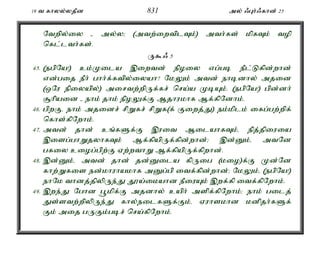 19 வ காலல்லதீன 831 அல் ஃபுர்க்கான் 25
வேறில்லை , அல்ல; (அவற்றைவிடவும்) அவர்கள் மிகவும் வழி
கெட்டவர்கள்.
ருகூஃ 5
45. (நபியே!) உம்முடைய இறைவன் நிழலை எப்படி நீட்டுகின்றான்
என்பதை நீர் பார்க்கவில்லையா? மேலும் அவன் நாடினால் அதனை
(ஒரே நிலையில்) அசைவற்றிருக்கச் செய்ய முடியும். (நபியே!) பின்னர்
சூரியனை , நாம் தாம் நிழலுக்கு ஆதாரமாக ஆக்கினோம்.
46. பிறகு, நாம் அதனைச் சிறுகச் சிறுக(க் குறைத்து) நம்மிடம் கைப்பற்றிக்
கொள்கிறோம்.
47. அவன் தான் உங்களுக்கு இரவை ஆடையாகவும், நித்திரையை
இளைப்பாறுதலாகவும் ஆக்கியிருக்கின்றான்; இன்னும், அவனே
பகலை உழைப்பிற்கு ஏற்றவாறு ஆக்கியிருக்கிறான்.
48. இன்னும், அவன் தான் தன்னுடைய கிருபை (மழை)க்கு முன்னே
காற்றுகளை நன்மாராயமாக அனுப்பி வைக்கின்றான்; மேலும், (நபியே!)
நாமே வானத்திலிருந்து தூய்மையான நீரையும் இறக்கி வைக்கிறோம்.
49. இறந்து போன பூமிக்கு அதனால் உயிர் அளிக்கிறோம்; நாம் படைத்
துள்ளவற்றிலிருந்து கால்நடைகளுக்கும், ஏராளமான மனிதர்களுக்
கும் அதை பருகும்படிச் செய்கிறோம்.